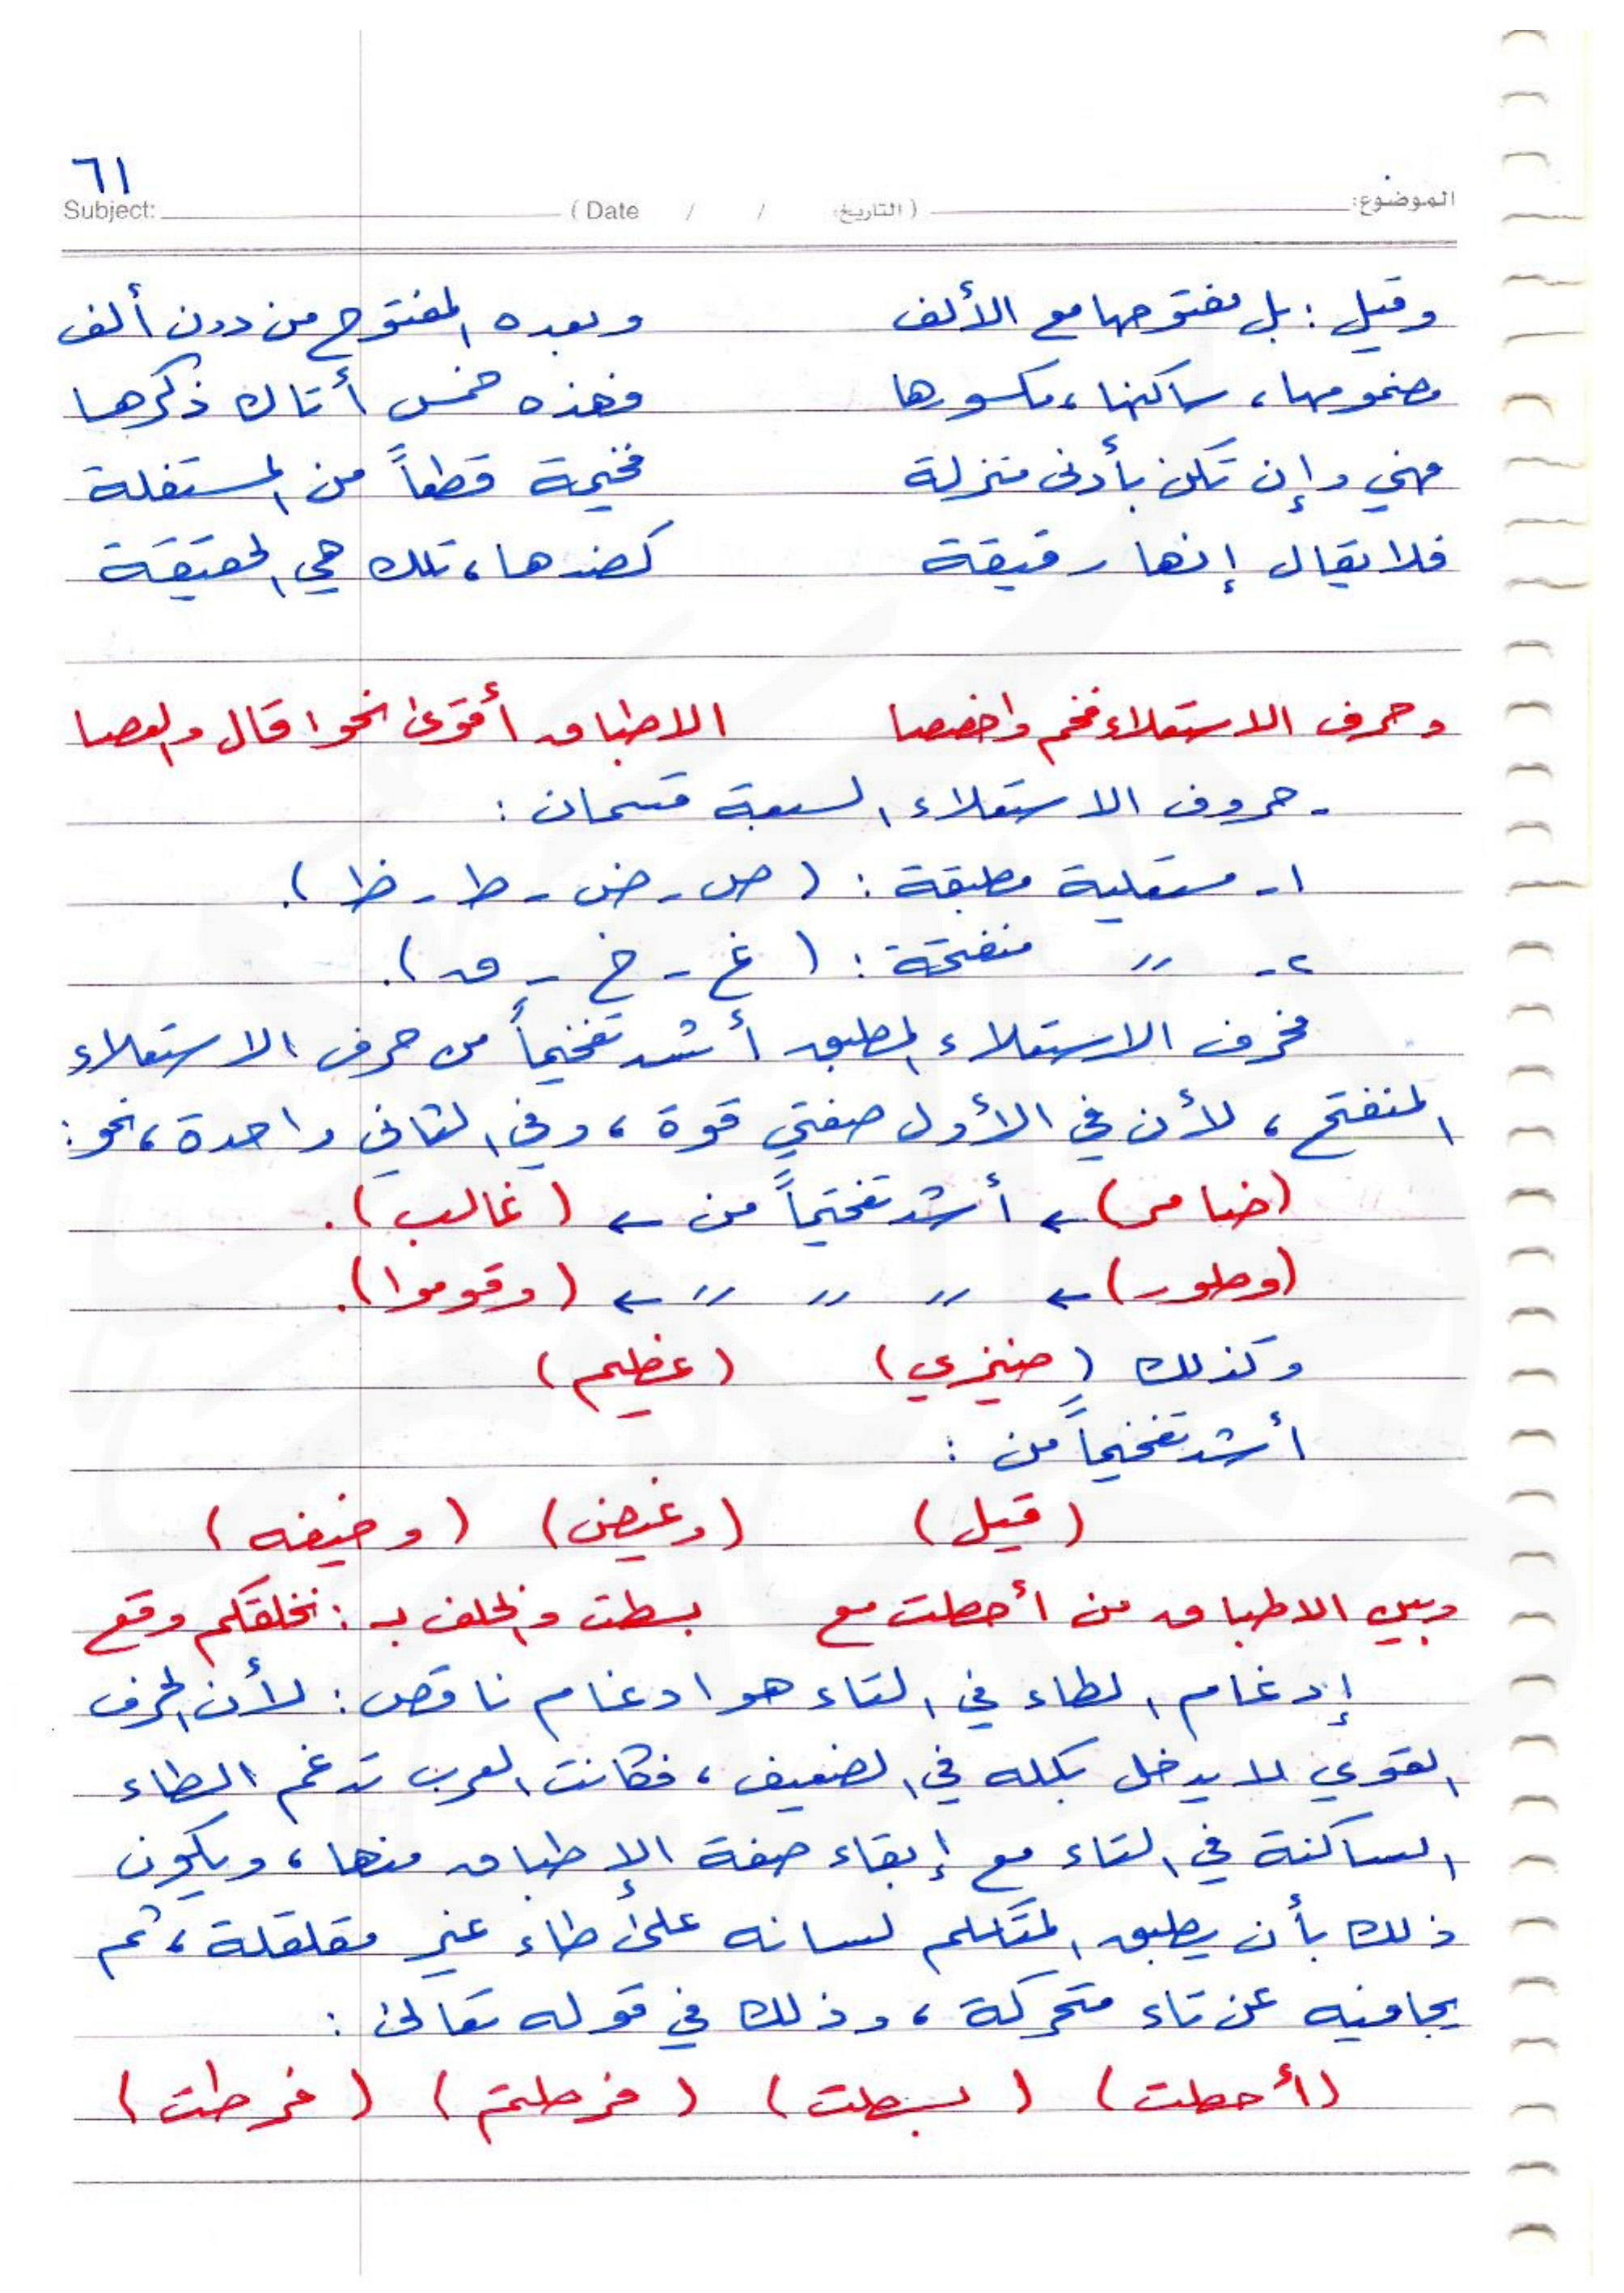 ٦١
الموضوع: (التاريخ: / / Date) Subject:
وقيل: بل مفتوحها مع الألف وبعده المفتوح من دون ألف
مضمومها، ساكنها، مكسورها فهذه خمس أتاك ذكرها
فهي وإن تكن بأدنى منزلة فخيمة قطعاً من المستفلة
فلا يقال إنها رقيقة كضدها، تلك هي الحقيقة
وحرف الاستعلاء فخم واخصصا الاطباق أقوى نحو قال والعصا
- حروف الاستعلاء السبعة قسمان:
١- مستعلية مطبقة: (ص - ض - ط - ظ).
٢- " منفتحة: (غ - خ - ق).
فحرف الاستعلاء المطبق أشد تفخيماً من حرف الاستعلاء
المنفتح، لأن في الأول صفتي قوة، وفي الثاني واحدة، نحو:
(ضامر) ← أشد تفخيماً من ← (غالب).
(وطور) ← " " " ← (وقوموا).
وكذلك (ضيزى) (عظيم)
أشد تفخيماً من:
(قيل) (وغيض) (وخيفه)
وبين الاطباق من أحطت مع بسطت والخلف بـ: نخلقكم وقع
إدغام الطاء في التاء هو ادغام ناقص: لأن الحرف
القوي لا يدخل بكله في الضعيف، فكانت العرب تدغم الطاء
الساكنة في التاء مع إبقاء صفة الإطباق منها، ويكون
ذلك بأن يطبق المتكلم لسانه على طاء غير مقلقلة، ثم
يجافيه عن تاء متحركة، وذلك في قوله تعالى:
(أحطت) (بسطت) (فرطتم) (فرطت)